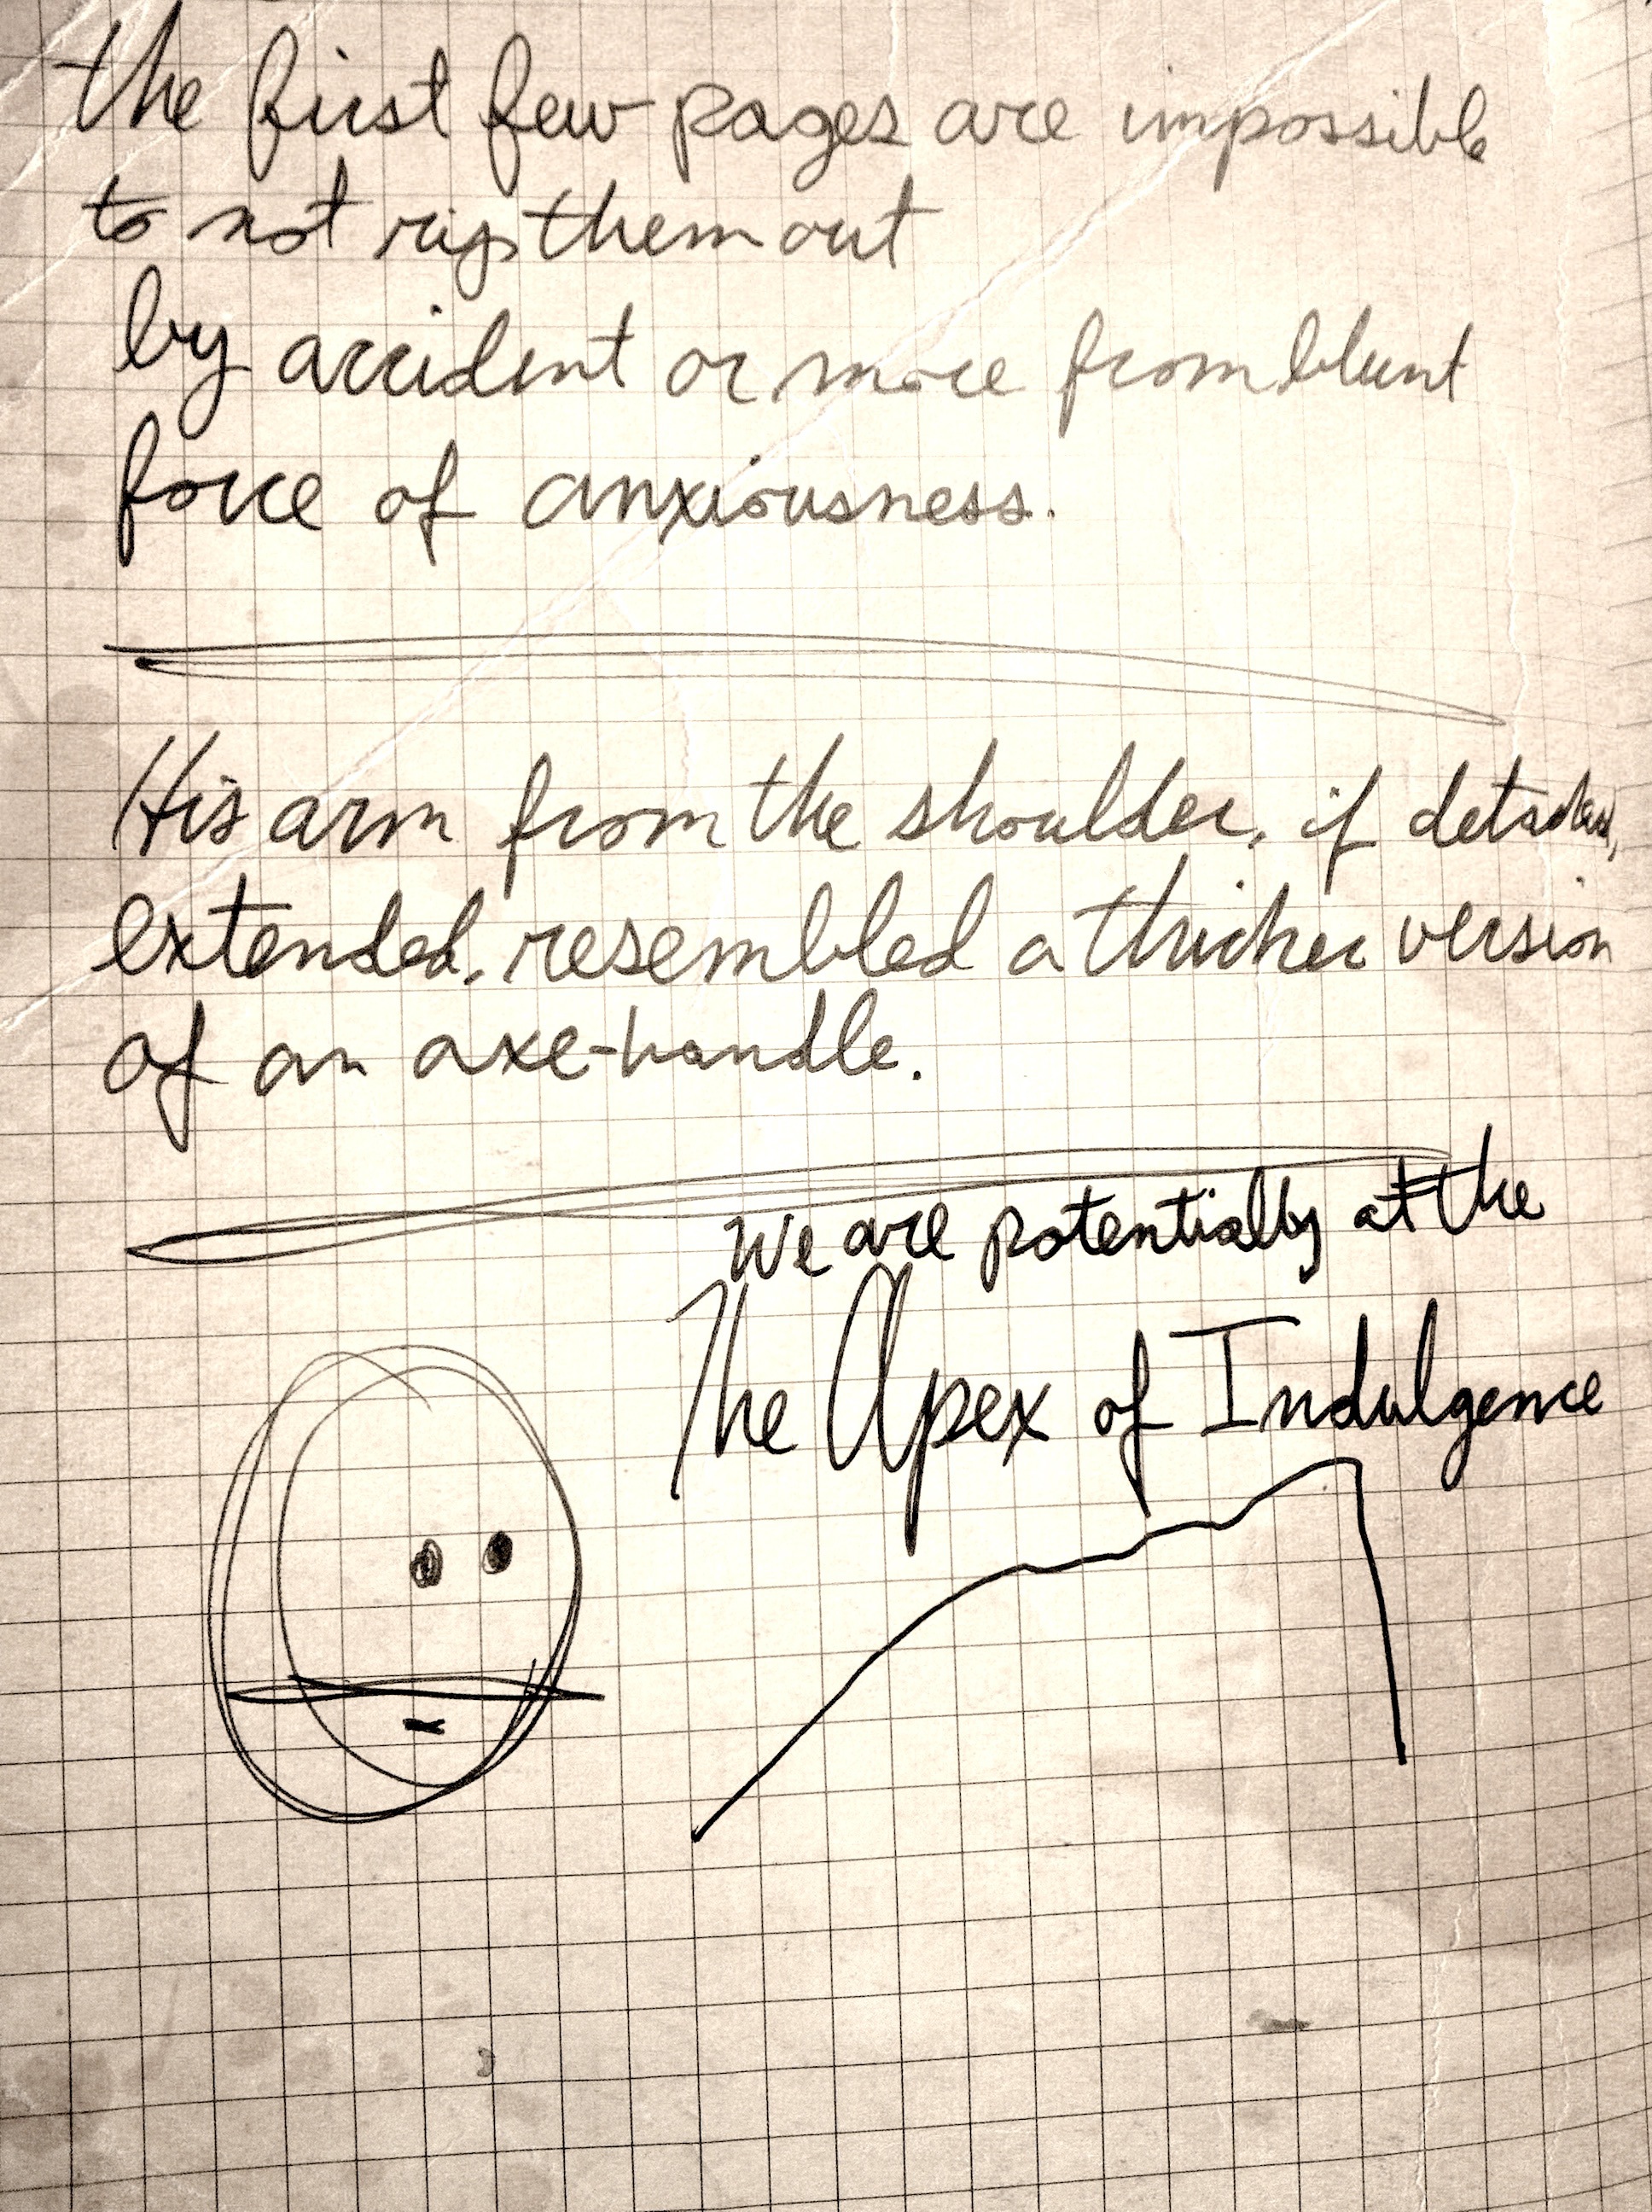 the first few pages are impossible
to not rip them out
by accident or more from blunt
force of anxiousness.
His arm from the shoulder, if
extended, resembled a thicker version
of an axe-handle.
We are potentially at the
The Apex of Indulgence